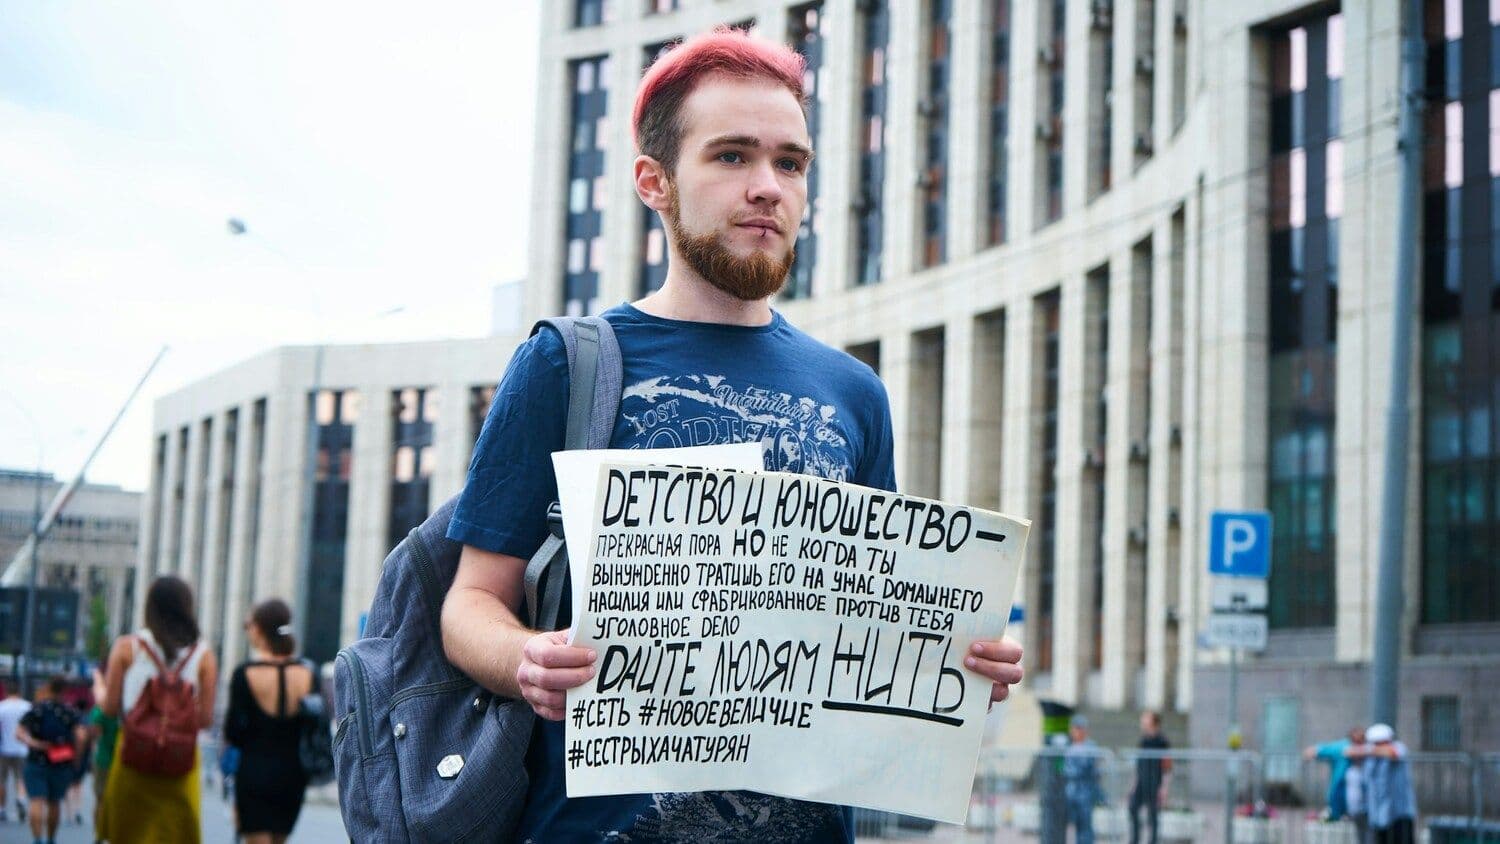 LOST
Mountain
ДЕТСТВО И ЮНОШЕСТВО —
ПРЕКРАСНАЯ ПОРА НО НЕ КОГДА ТЫ
ВЫНУЖДЕННО ТРАТИШЬ ЕГО НА УЖАС ДОМАШНЕГО
НАСИЛИЯ ИЛИ СФАБРИКОВАННОЕ ПРОТИВ ТЕБЯ
УГОЛОВНОЕ ДЕЛО
ДАЙТЕ ЛЮДЯМ ЖИТЬ
#СЕТЬ #НОВОЕВЕЛИЧИЕ
#СЕСТРЫХАЧАТУРЯН
P